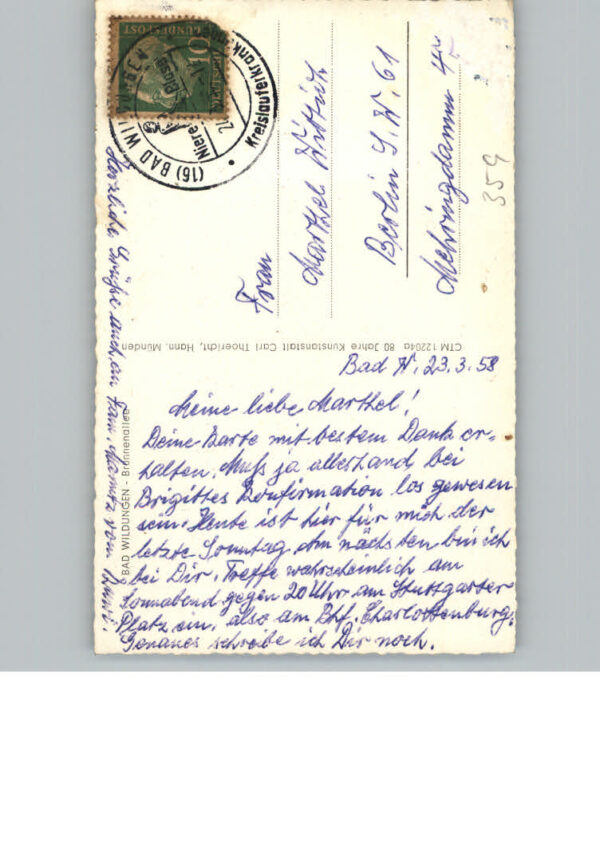 Bad W. 23.3.58
Meine liebe Marthel!
Deine Karte mit bestem Dank er-
halten. Muß ja allerhand bei
Brigittes Konfirmation los gewesen
sein. Heute ist hier für mich der
letzte Sonntag. Am nächsten bin ich
bei Dir. Treffe wahrscheinlich am
Sonnabend gegen 20 Uhr am Stuttgarter
Platz ein, also am Bhf. Charlottenburg.
Genaues schreibe ich Dir noch.
Herzliche Grüße auch an Fam. vom
Frau
Marthel
Berlin S.W. 61
Mehringdamm
359
BAD WILDUNGEN - Brunnenallee
CTM 12204a 80 Jahre Kunstanstalt Carl Thoericht, Hann. Münden
10
DEUTSCHE
BUNDESPOST
(16) BAD WIL
Kreislauferkrank